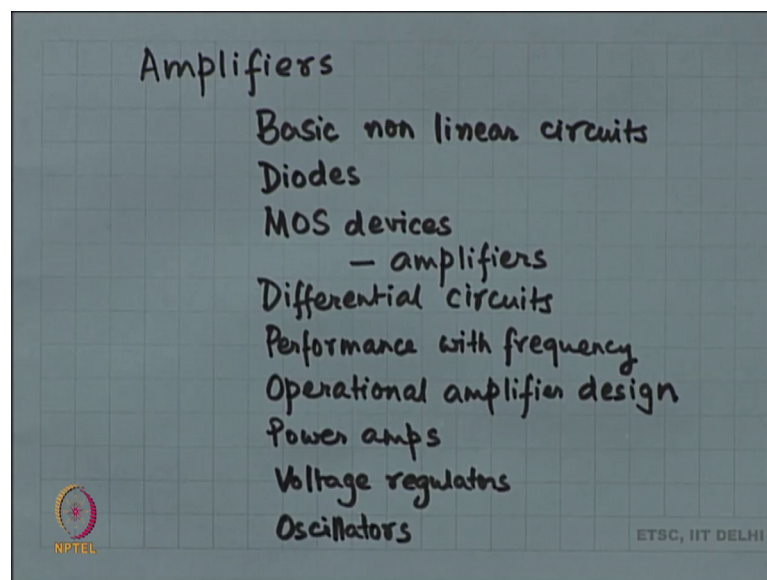 Amplifiers
Basic non linear circuits
Diodes
MOS devices
— amplifiers
Differential circuits
Performance with frequency
Operational amplifier design
Power amps
Voltage regulators
Oscillators
NPTEL
ETSC, IIT DELHI